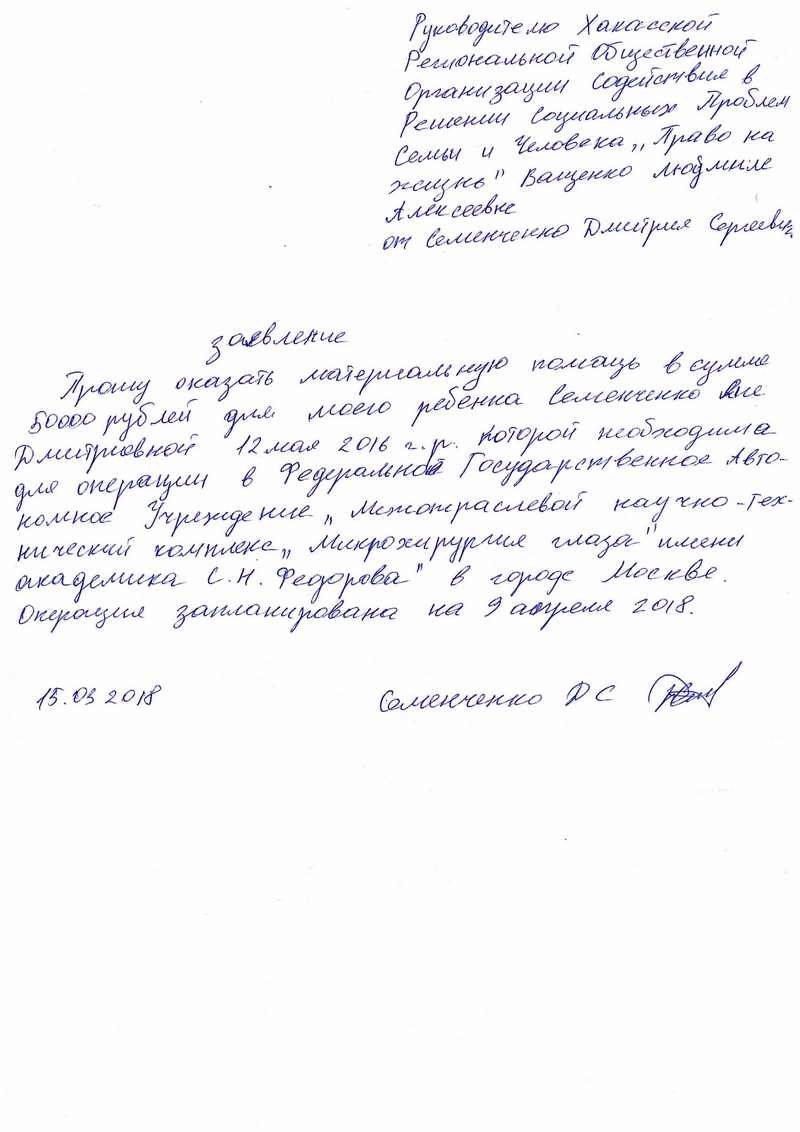 Руководителю Хакасской
Региональной Общественной
Организации Содействия в
Решении Социальных Проблем
Семьи и Человека „Право на
жизнь" Ващенко Людмиле
Алексеевне
от Семенченко Дмитрия Сергеевича
заявление
Прошу оказать материальную помощь в сумме
50000 рублей для моего ребенка Семенченко
Дмитриовной 12 мая 2016 г.р. которой необходима
для операции в Федеральной Государственное Авто-
номное Учреждение „Межотраслевой научно-тех-
нический комплекс „Микрохирургия глаза" имени
академика С.Н. Федорова" в городе Москве.
Операция запланирована на 9 апреля 2018.
15.03 2018 Семенченко Д С